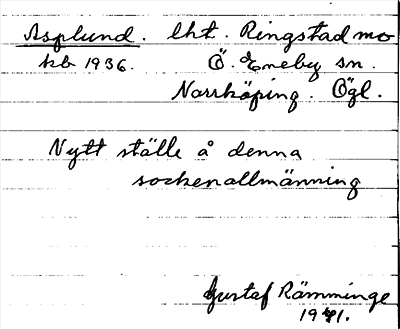 Asplund. lht. Ringstad mo
kb 1936. Ö. Eneby sn.
Norrköping. Ögl.
Nytt ställe å denna
sockenallmänning
Gustaf Rämminge
1941.